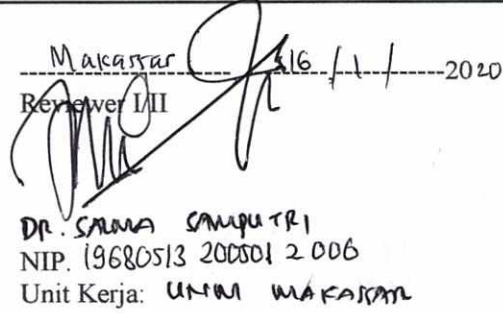 Makassar 16/1/2020
Reviewer I/II
DR. SALMA SAMPUTRI
NIP. 19680513 200501 2 006
Unit Kerja: UNM MAKASSAR